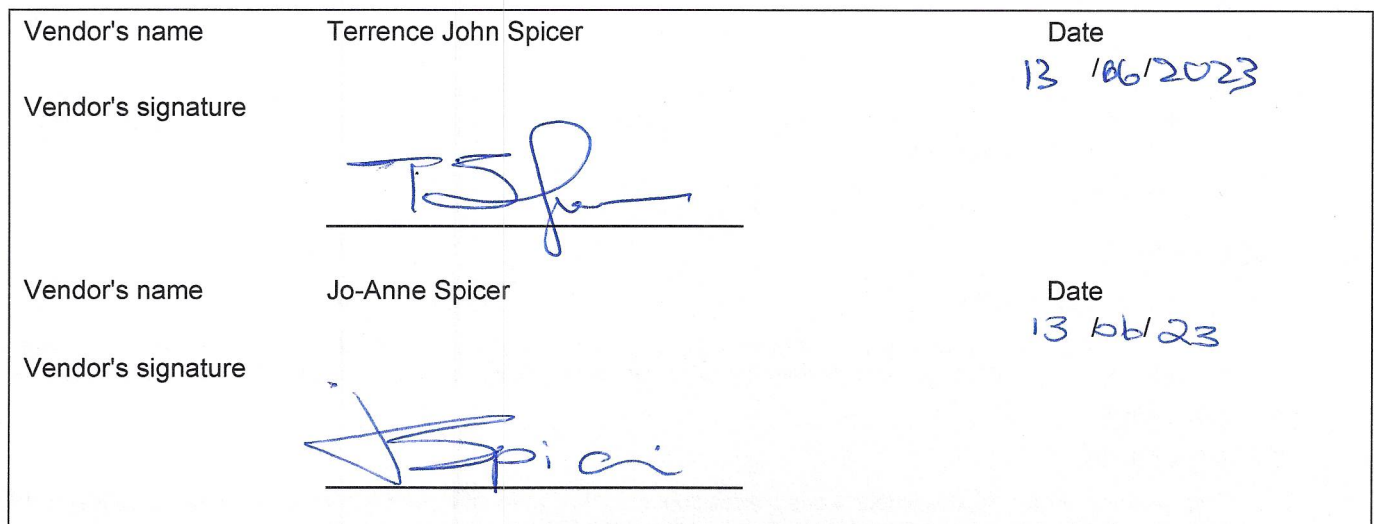 Vendor's name Terrence John Spicer Date
13 /06/2023
Vendor's signature
TSpicer
Vendor's name Jo-Anne Spicer Date
13 /06/23
Vendor's signature
JSpicer